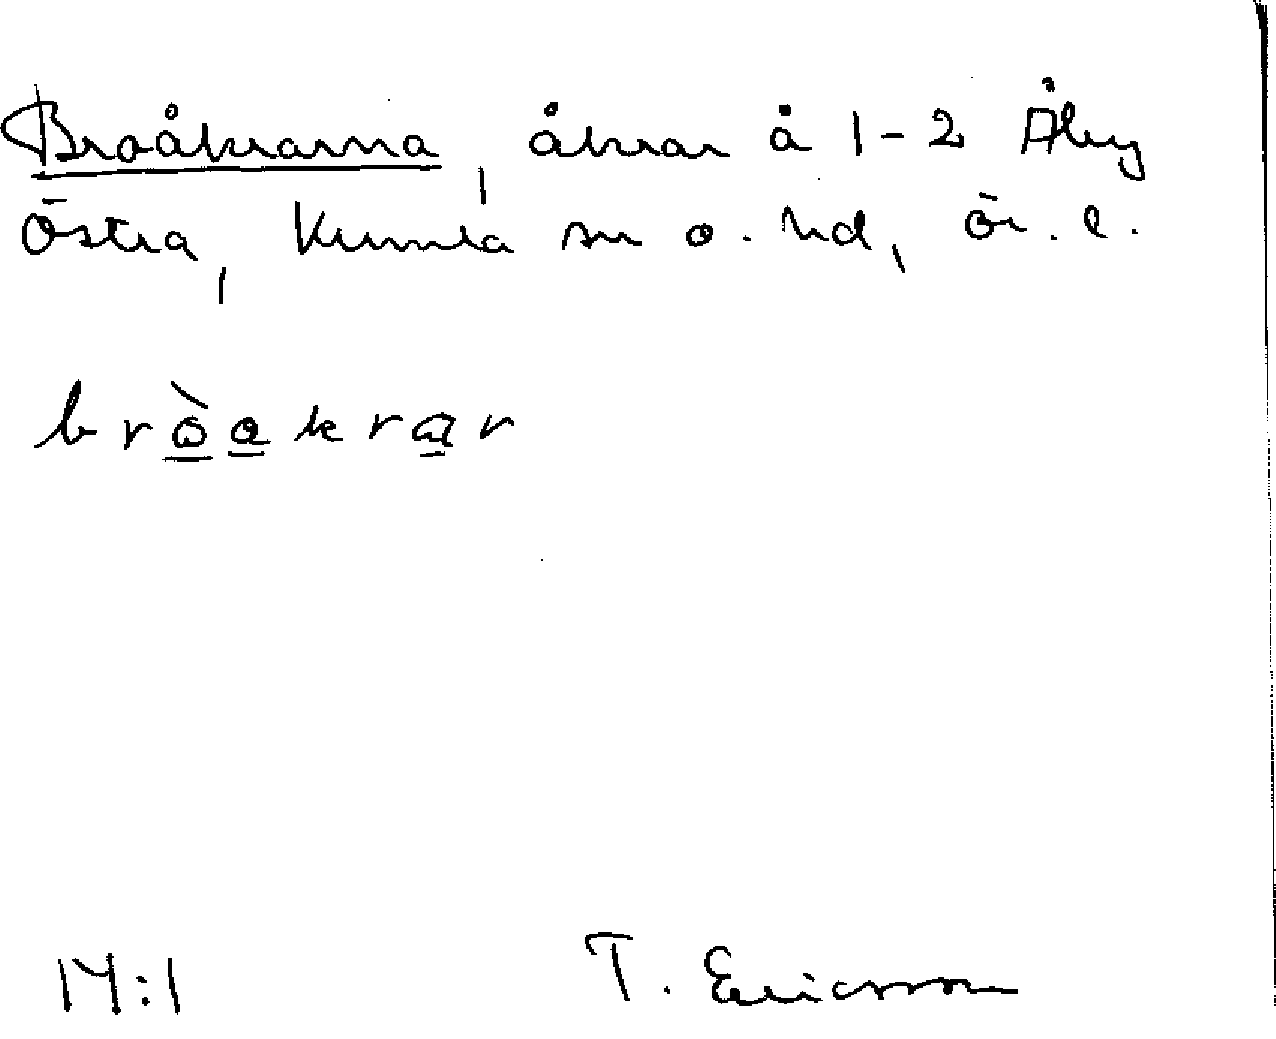 Broåkrarna, åkrar å 1-2 Åby
Östra, Kumla sn o. hd, ör. l.
bròakrar
14:1 T. Ericsson